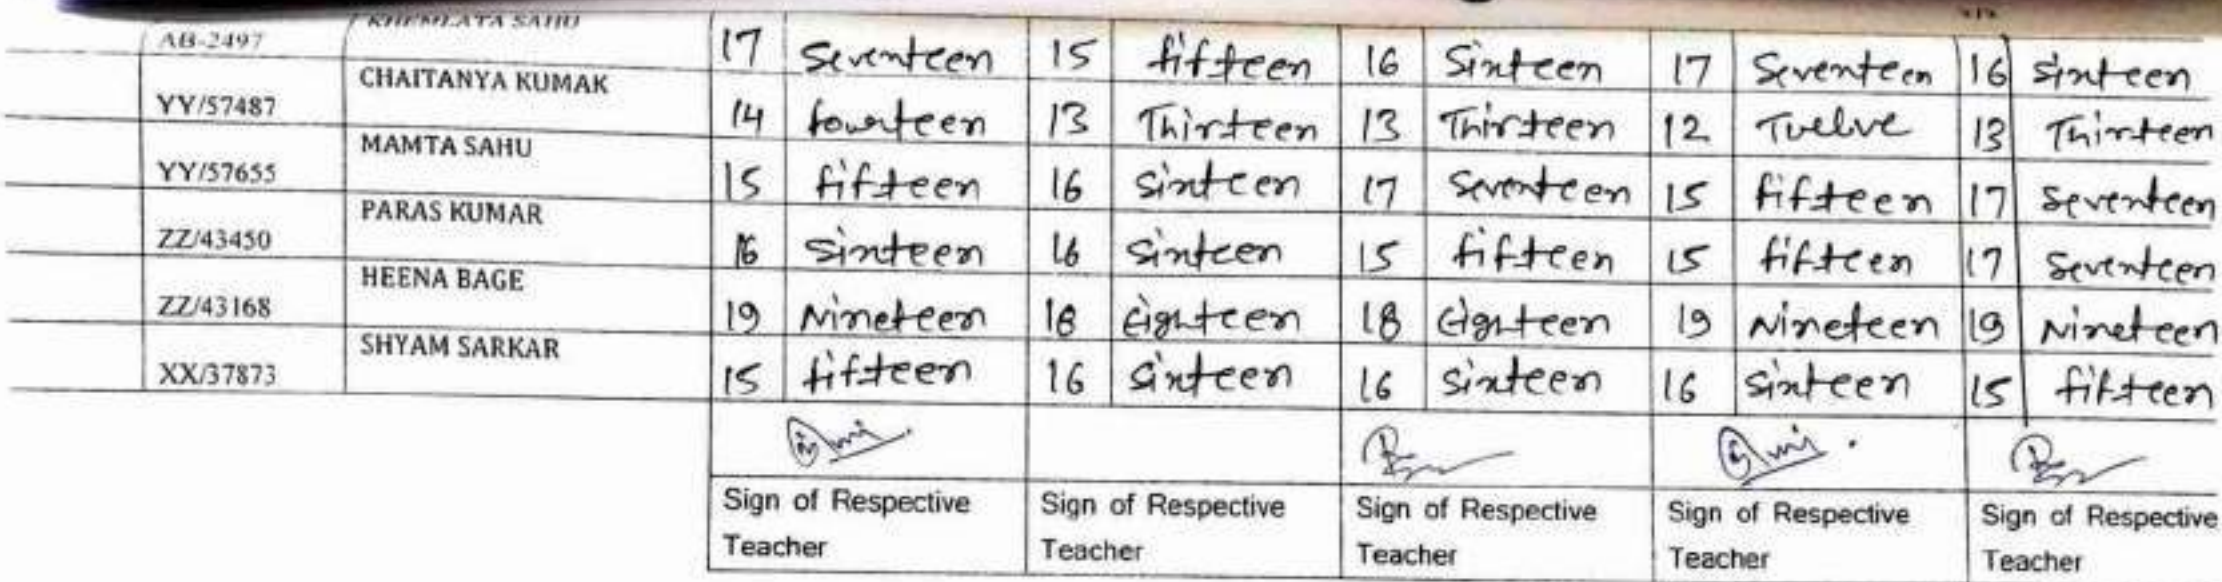 AB-2497 KHEMLATA SAHU 17 Seventeen 15 fifteen 16 Sixteen 17 Seventeen 16 sixteen
YY/57487 CHAITANYA KUMAR 14 fourteen 13 Thirteen 13 Thirteen 12 Twelve 13 Thirteen
YY/57655 MAMTA SAHU 15 fifteen 16 sixteen 17 Seventeen 15 fifteen 17 Seventeen
ZZ/43450 PARAS KUMAR 16 sixteen 16 sixteen 15 fifteen 15 fifteen 17 Seventeen
ZZ/43168 HEENA BAGE 19 Nineteen 18 Eighteen 18 Eighteen 19 Nineteen 19 Nineteen
XX/37873 SHYAM SARKAR 15 fifteen 16 sixteen 16 sixteen 16 sixteen 15 fifteen
Sign of Respective Sign of Respective Sign of Respective Sign of Respective Sign of Respective
Teacher Teacher Teacher Teacher Teacher